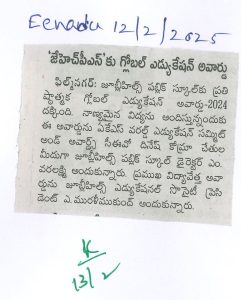 Eenadu 12/2/2025
'జేహెచ్‌పీఎస్‌'కు గ్లోబల్ ఎడ్యుకేషన్ అవార్డు
ఫిల్మ్‌నగర్: జూబ్లీహిల్స్ పబ్లిక్ స్కూల్‌కు ప్రతి
ష్ఠాత్మక గ్లోబల్ ఎడ్యుకేషన్ అవార్డు-2024
దక్కింది. నాణ్యమైన విద్యను అందిస్తున్నందుకు
ఈ అవార్డును ఏకేఎస్ వరల్డ్ ఎడ్యుకేషన్ సమ్మిట్
అండ్ అవార్డ్స్ సీఈవో దినేష్ కోమ్రా చేతుల
మీదుగా జూబ్లీహిల్స్ పబ్లిక్ స్కూల్ డైరెక్టర్ ఎం.
వరలక్ష్మి అందుకున్నారు. ప్రముఖ విద్యావేత్త అవా
ర్డును జూబ్లీహిల్స్ ఎడ్యుకేషనల్ సొసైటీ ప్రెసి
డెంట్ ఎ.మురళీముకుంద్ అందుకున్నారు.
13/2